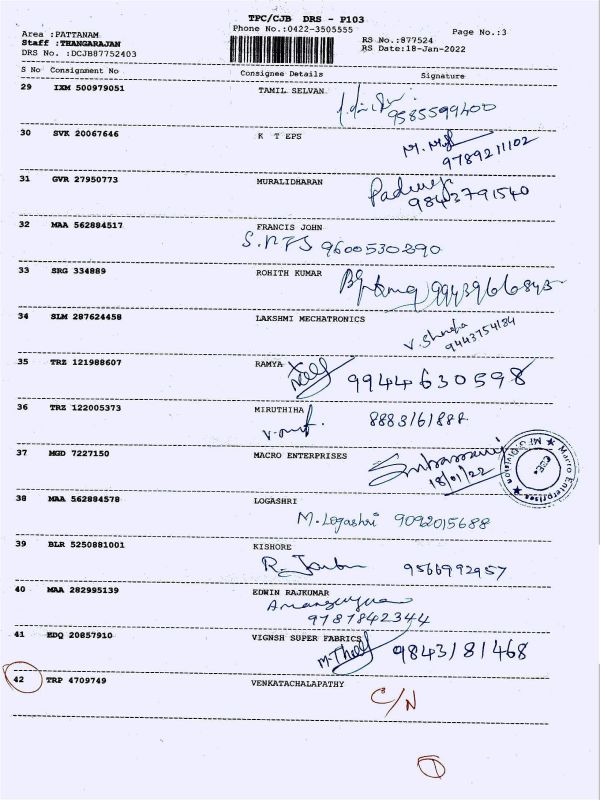 TPC/CJB DRS - P103
Area : PATTANAM Phone No.:0422-3505555 Page No.:3
Staff :THANGARAJAN RS No.:877524
DRS No. :DCJB87752403 RS Date:18-Jan-2022
S No Consignment No Consignee Details Signature
29 IXM 500979051 TAMIL SELVAN
9585599400
30 SVK 20067646 K T EPS
9789211102
31 GVR 27950773 MURALIDHARAN
9843791540
32 MAA 562884517 FRANCIS JOHN
9600530890
33 SRG 334889 ROHITH KUMAR
34 SLM 287624458 LAKSHMI MECHATRONICS
9443754184
35 TRZ 121988607 RAMYA
9944630598
36 TRZ 122005373 MIRUTHIHA
37 MGD 7227150 MACRO ENTERPRISES
18/01/22
Macro Enterprises
38 MAA 562884578 LOGASHRI
M. Logashri 9092015688
39 BLR 5250881001 KISHORE
9566992957
40 MAA 282995139 EDWIN RAJKUMAR
9787842344
41 EDQ 20857910 VIGNSH SUPER FABRICS
9843181468
42 TRP 4709749 VENKATACHALAPATHY
C/N
1